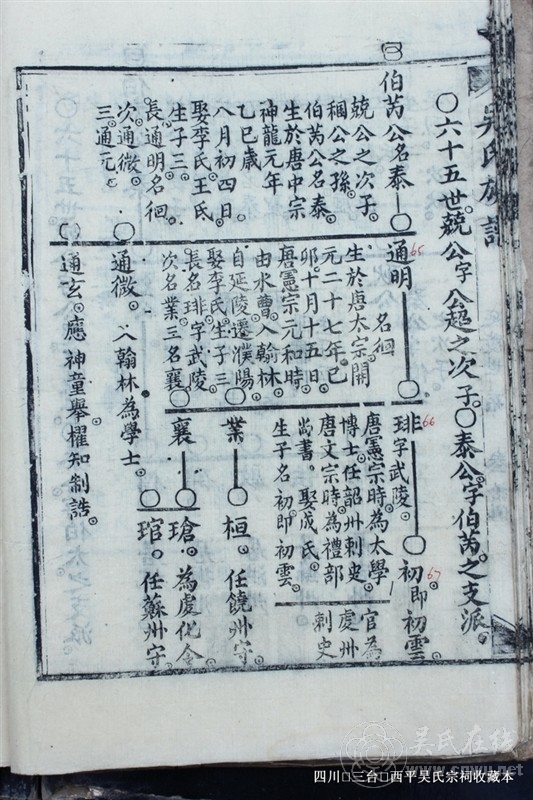 吳氏族譜
〇六十五世兢公字公超之次子〇泰公字伯芮之支派
伯芮公名泰
兢公之次子
稛公之孫
伯芮公名泰
生於唐中宗
神龍元年
乙巳歲
八月初四日
娶李氏王氏
生子三
長通明名徊
次通微
三通元
65
通明
名徊
生於唐太宗開
元二十七年己
卯十月十五日
唐憲宗元和時
由水曹入翰林
自延陵遷濮陽
娶李氏生子三
長名琲字武陵
次名業三名襄
通微 入翰林為學士
通玄 應神童舉擢知制誥
66
琲字武陵
唐憲宗時為太學
博士任韶州刺史
唐文宗時為禮部
尚書娶成氏
生子名初即初雲
67
初即初雲
官為
處州
刺史
業
桓 任饒州守
襄
瑲 為虔化令
琯 任蘇州守
吴氏在线
www.cnwu.net
四川 三台 西平吴氏宗祠收藏本